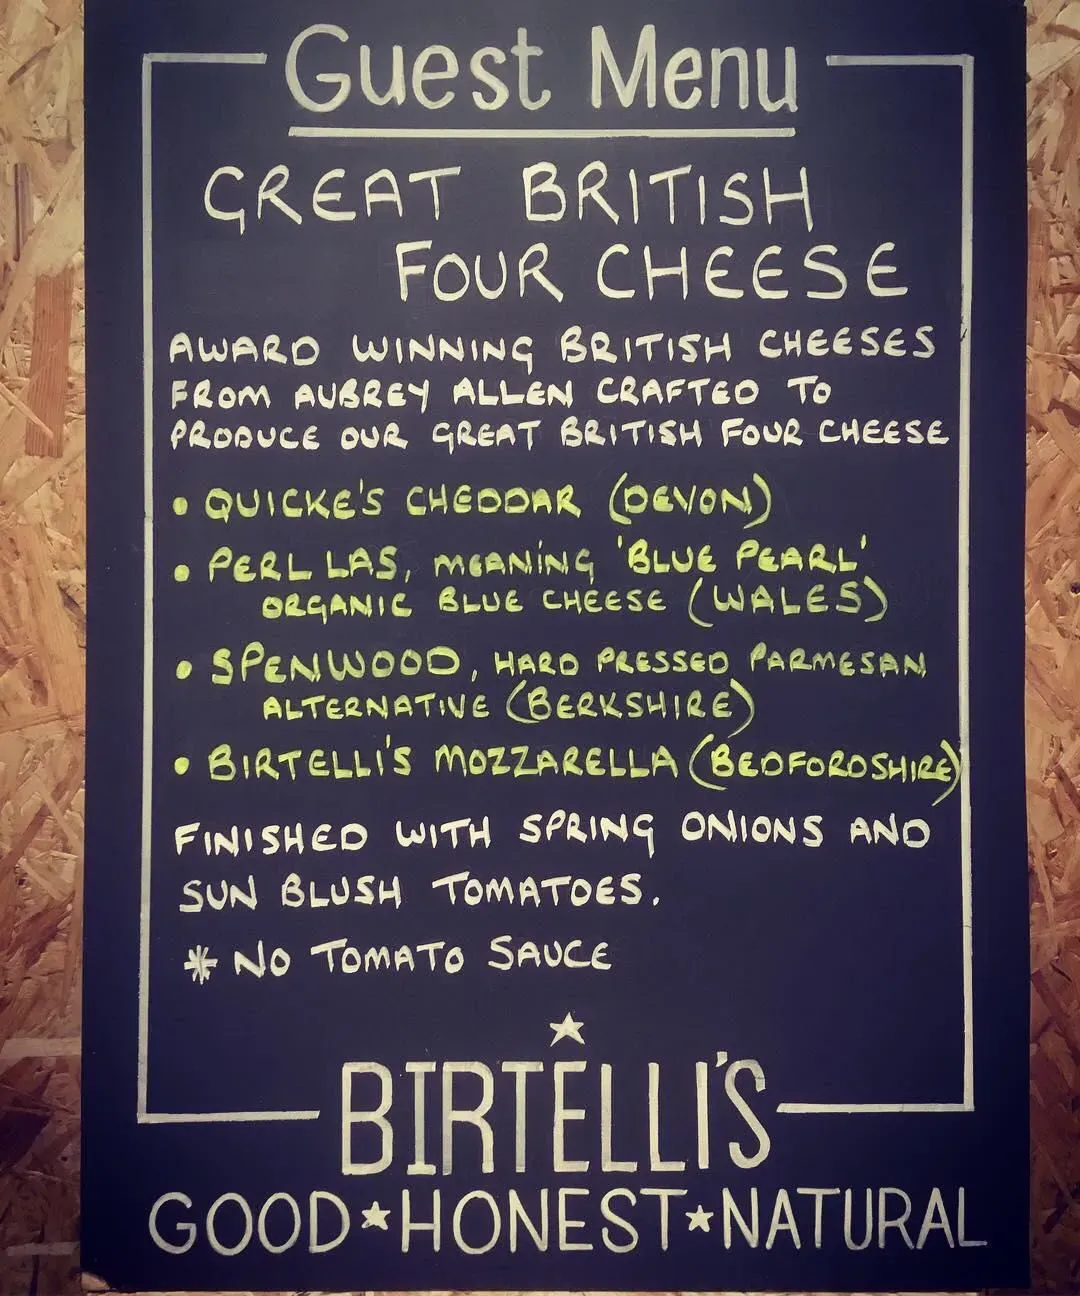 Guest Menu
GREAT BRITISH
FOUR CHEESE
AWARD WINNING BRITISH CHEESES
FROM AUBREY ALLEN CRAFTED TO
PRODUCE OUR GREAT BRITISH FOUR CHEESE
• QUICKE'S CHEDDAR (DEVON)
• PERL LAS, MEANING 'BLUE PEARL'
ORGANIC BLUE CHEESE (WALES)
• SPENWOOD, HARD PRESSED PARMESAN
ALTERNATIVE (BERKSHIRE)
• BIRTELLI'S MOZZARELLA (BEDFORDSHIRE)
FINISHED WITH SPRING ONIONS AND
SUN BLUSH TOMATOES.
* NO TOMATO SAUCE
BIRTELLI'S
GOOD★HONEST★NATURAL